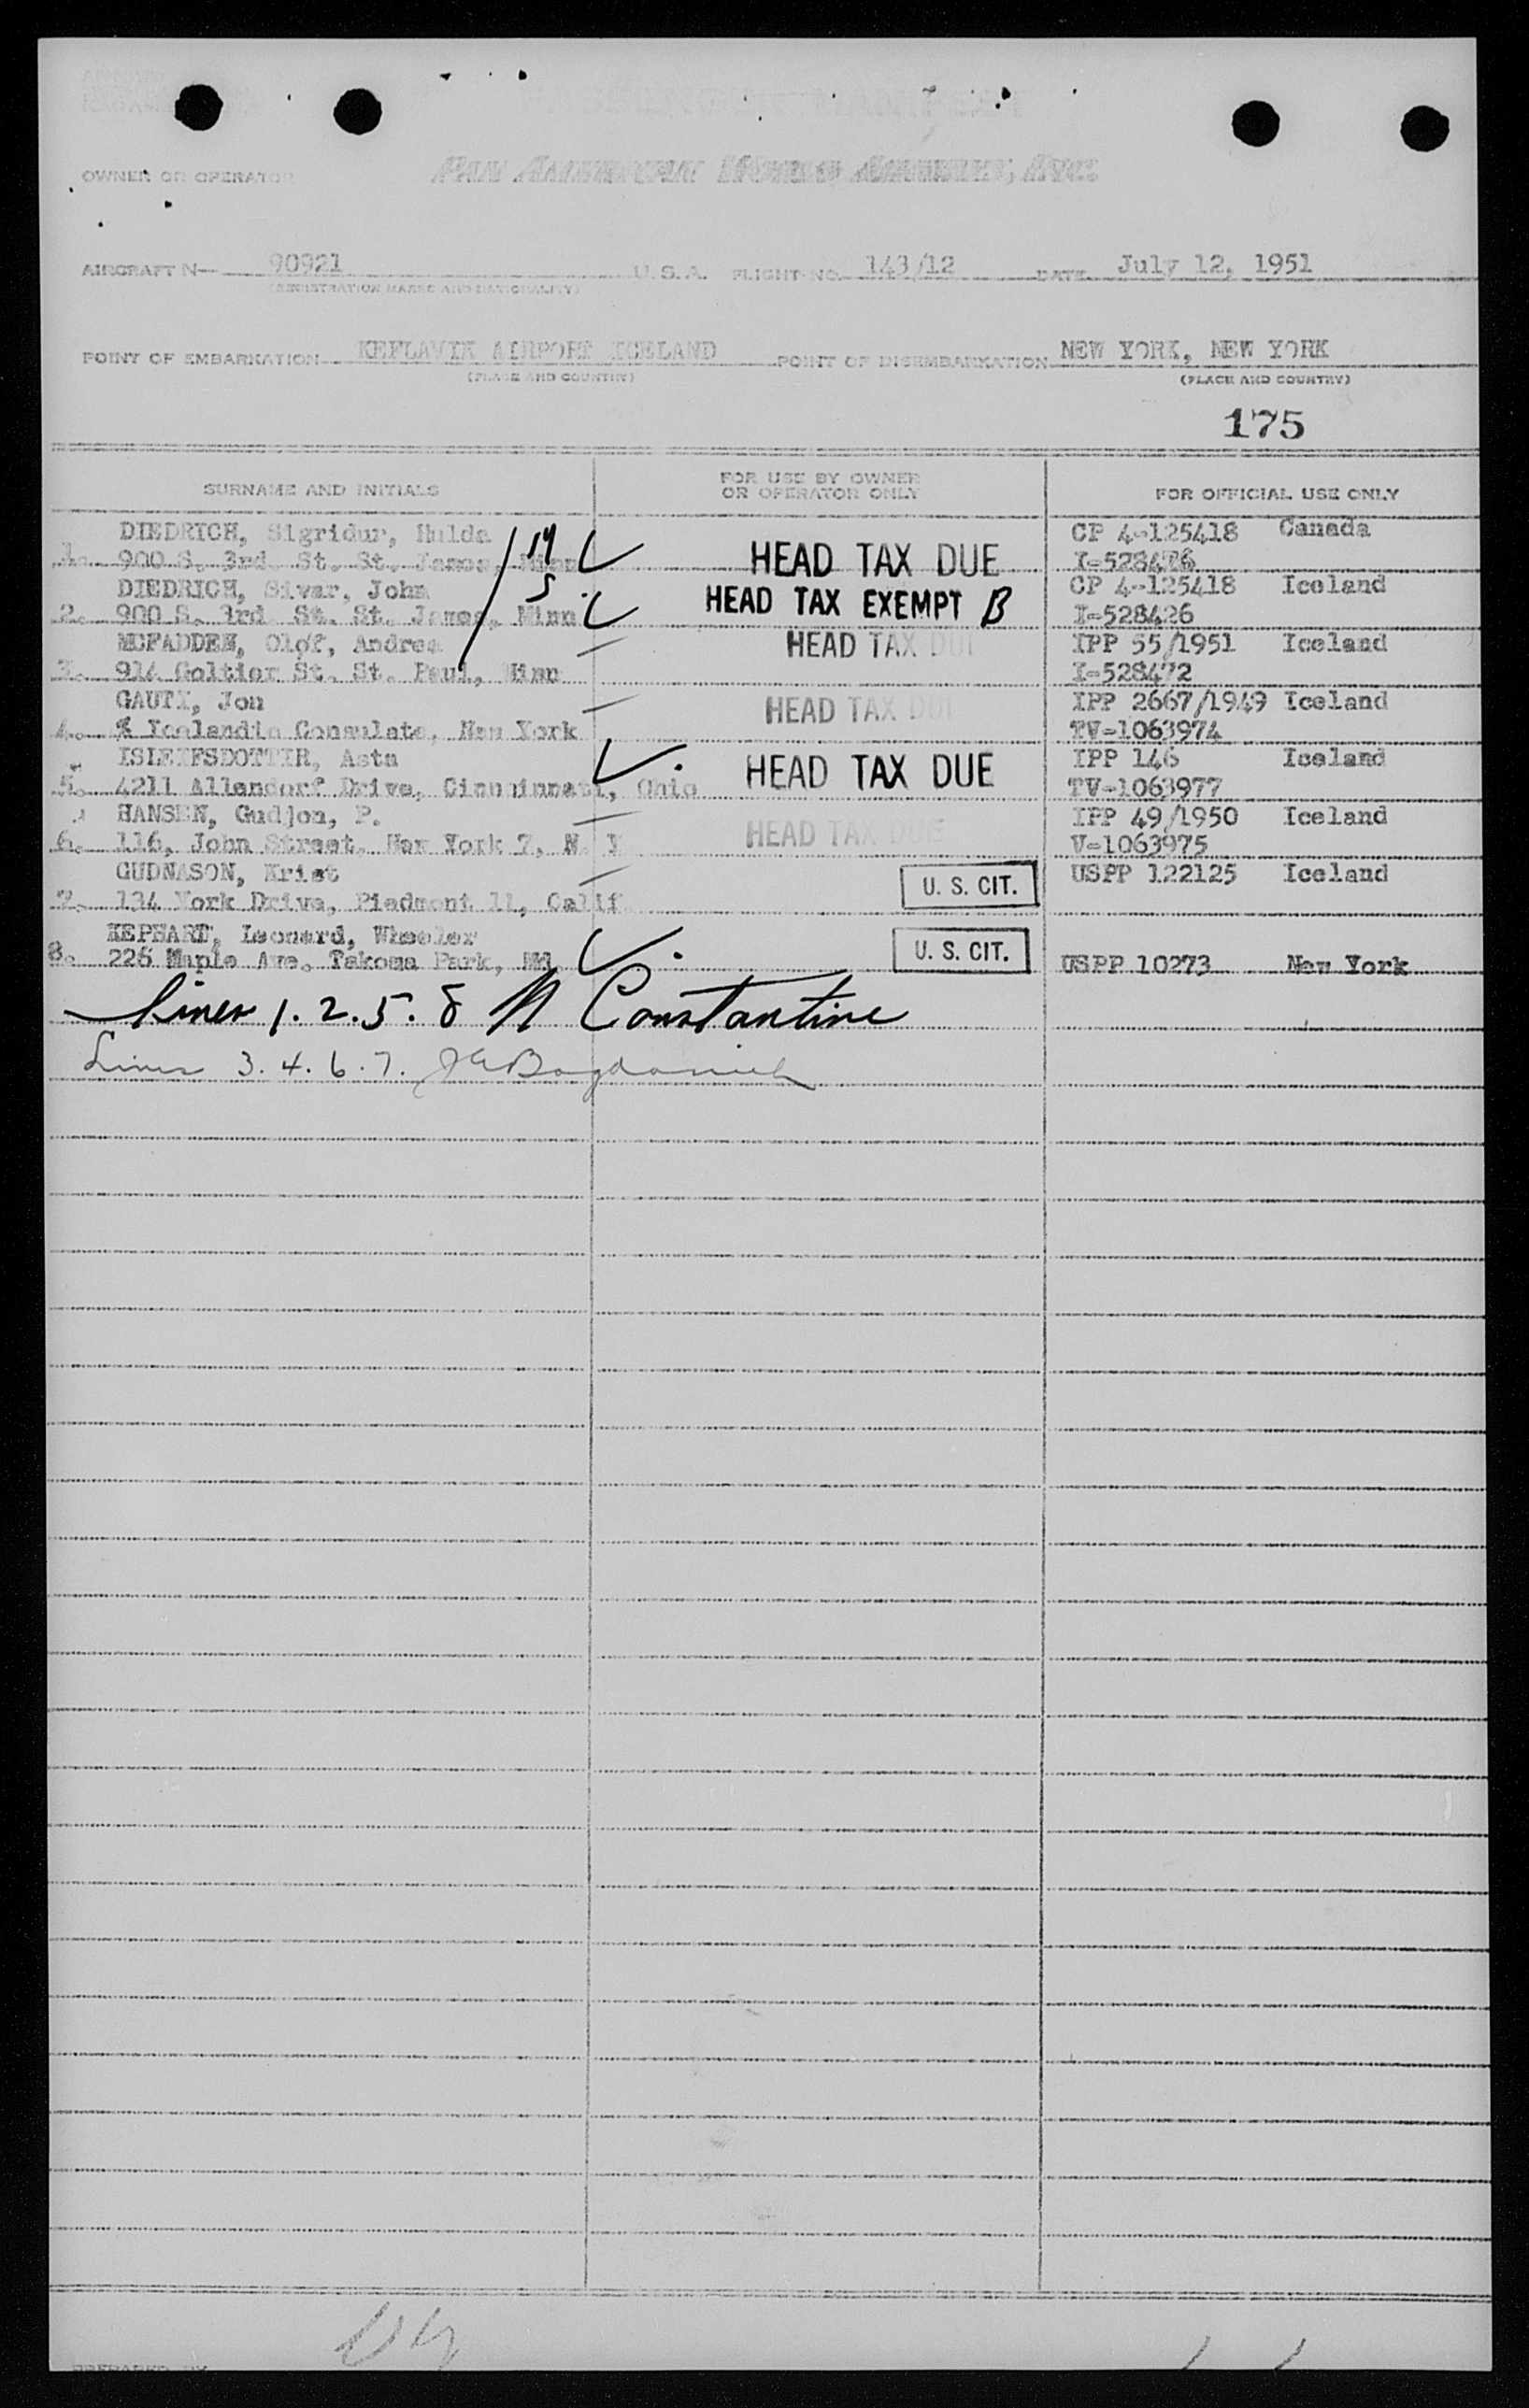 PASSENGER MANIFEST
OWNER OR OPERATOR PAN AMERICAN WORLD AIRWAYS, INC.
AIRCRAFT N— 90921 U. S. A. FLIGHT NO. 143/12 DATE July 12, 1951
(REGISTRATION MARKS AND NATIONALITY)
POINT OF EMBARKATION KEFLAVIK AIRPORT ICELAND POINT OF DISEMBARKATION NEW YORK, NEW YORK
(PLACE AND COUNTRY) (PLACE AND COUNTRY)
175
SURNAME AND INITIALS FOR USE BY OWNER OR OPERATOR ONLY FOR OFFICIAL USE ONLY
DIEDRICH, Sigridur, Hulda 14 CP 4-125418 Canada
1. 900 S. 3rd St. St. James, Minn HEAD TAX DUE I-528426
DIEDRICH, Sivar, John 5 CP 4-125418 Iceland
2. 900 S. 3rd St. St. James, Minn HEAD TAX EXEMPT B I-528426
MCFADDEN, Olof, Andrea HEAD TAX DUE IPP 55/1951 Iceland
3. 914 Galtier St. St. Paul, Minn I-528472
GAUTI, Jon HEAD TAX DUE IPP 2667/1949 Iceland
4. % Icelandic Consulate, New York TV-1063974
ISLEIFSDOTTIR, Asta HEAD TAX DUE IPP 146 Iceland
5. 4211 Allendorf Drive, Cincinnati, Ohio TV-1063977
HANSEN, Gudjon, P. HEAD TAX DUE IPP 49/1950 Iceland
6. 116, John Street, New York 7, N. Y V-1063975
GUDNASON, Krist U. S. CIT. USPP 122125 Iceland
7. 134 York Drive, Piedmont 11, Calif
KEPHART, Leonard, Wheeler U. S. CIT.
8. 226 Maple Ave. Takoma Park, Md USPP 10273 New York
Lines 1. 2. 5. 8 N Constantine
Lines 3. 4. 6. 7.
PREPARED BY